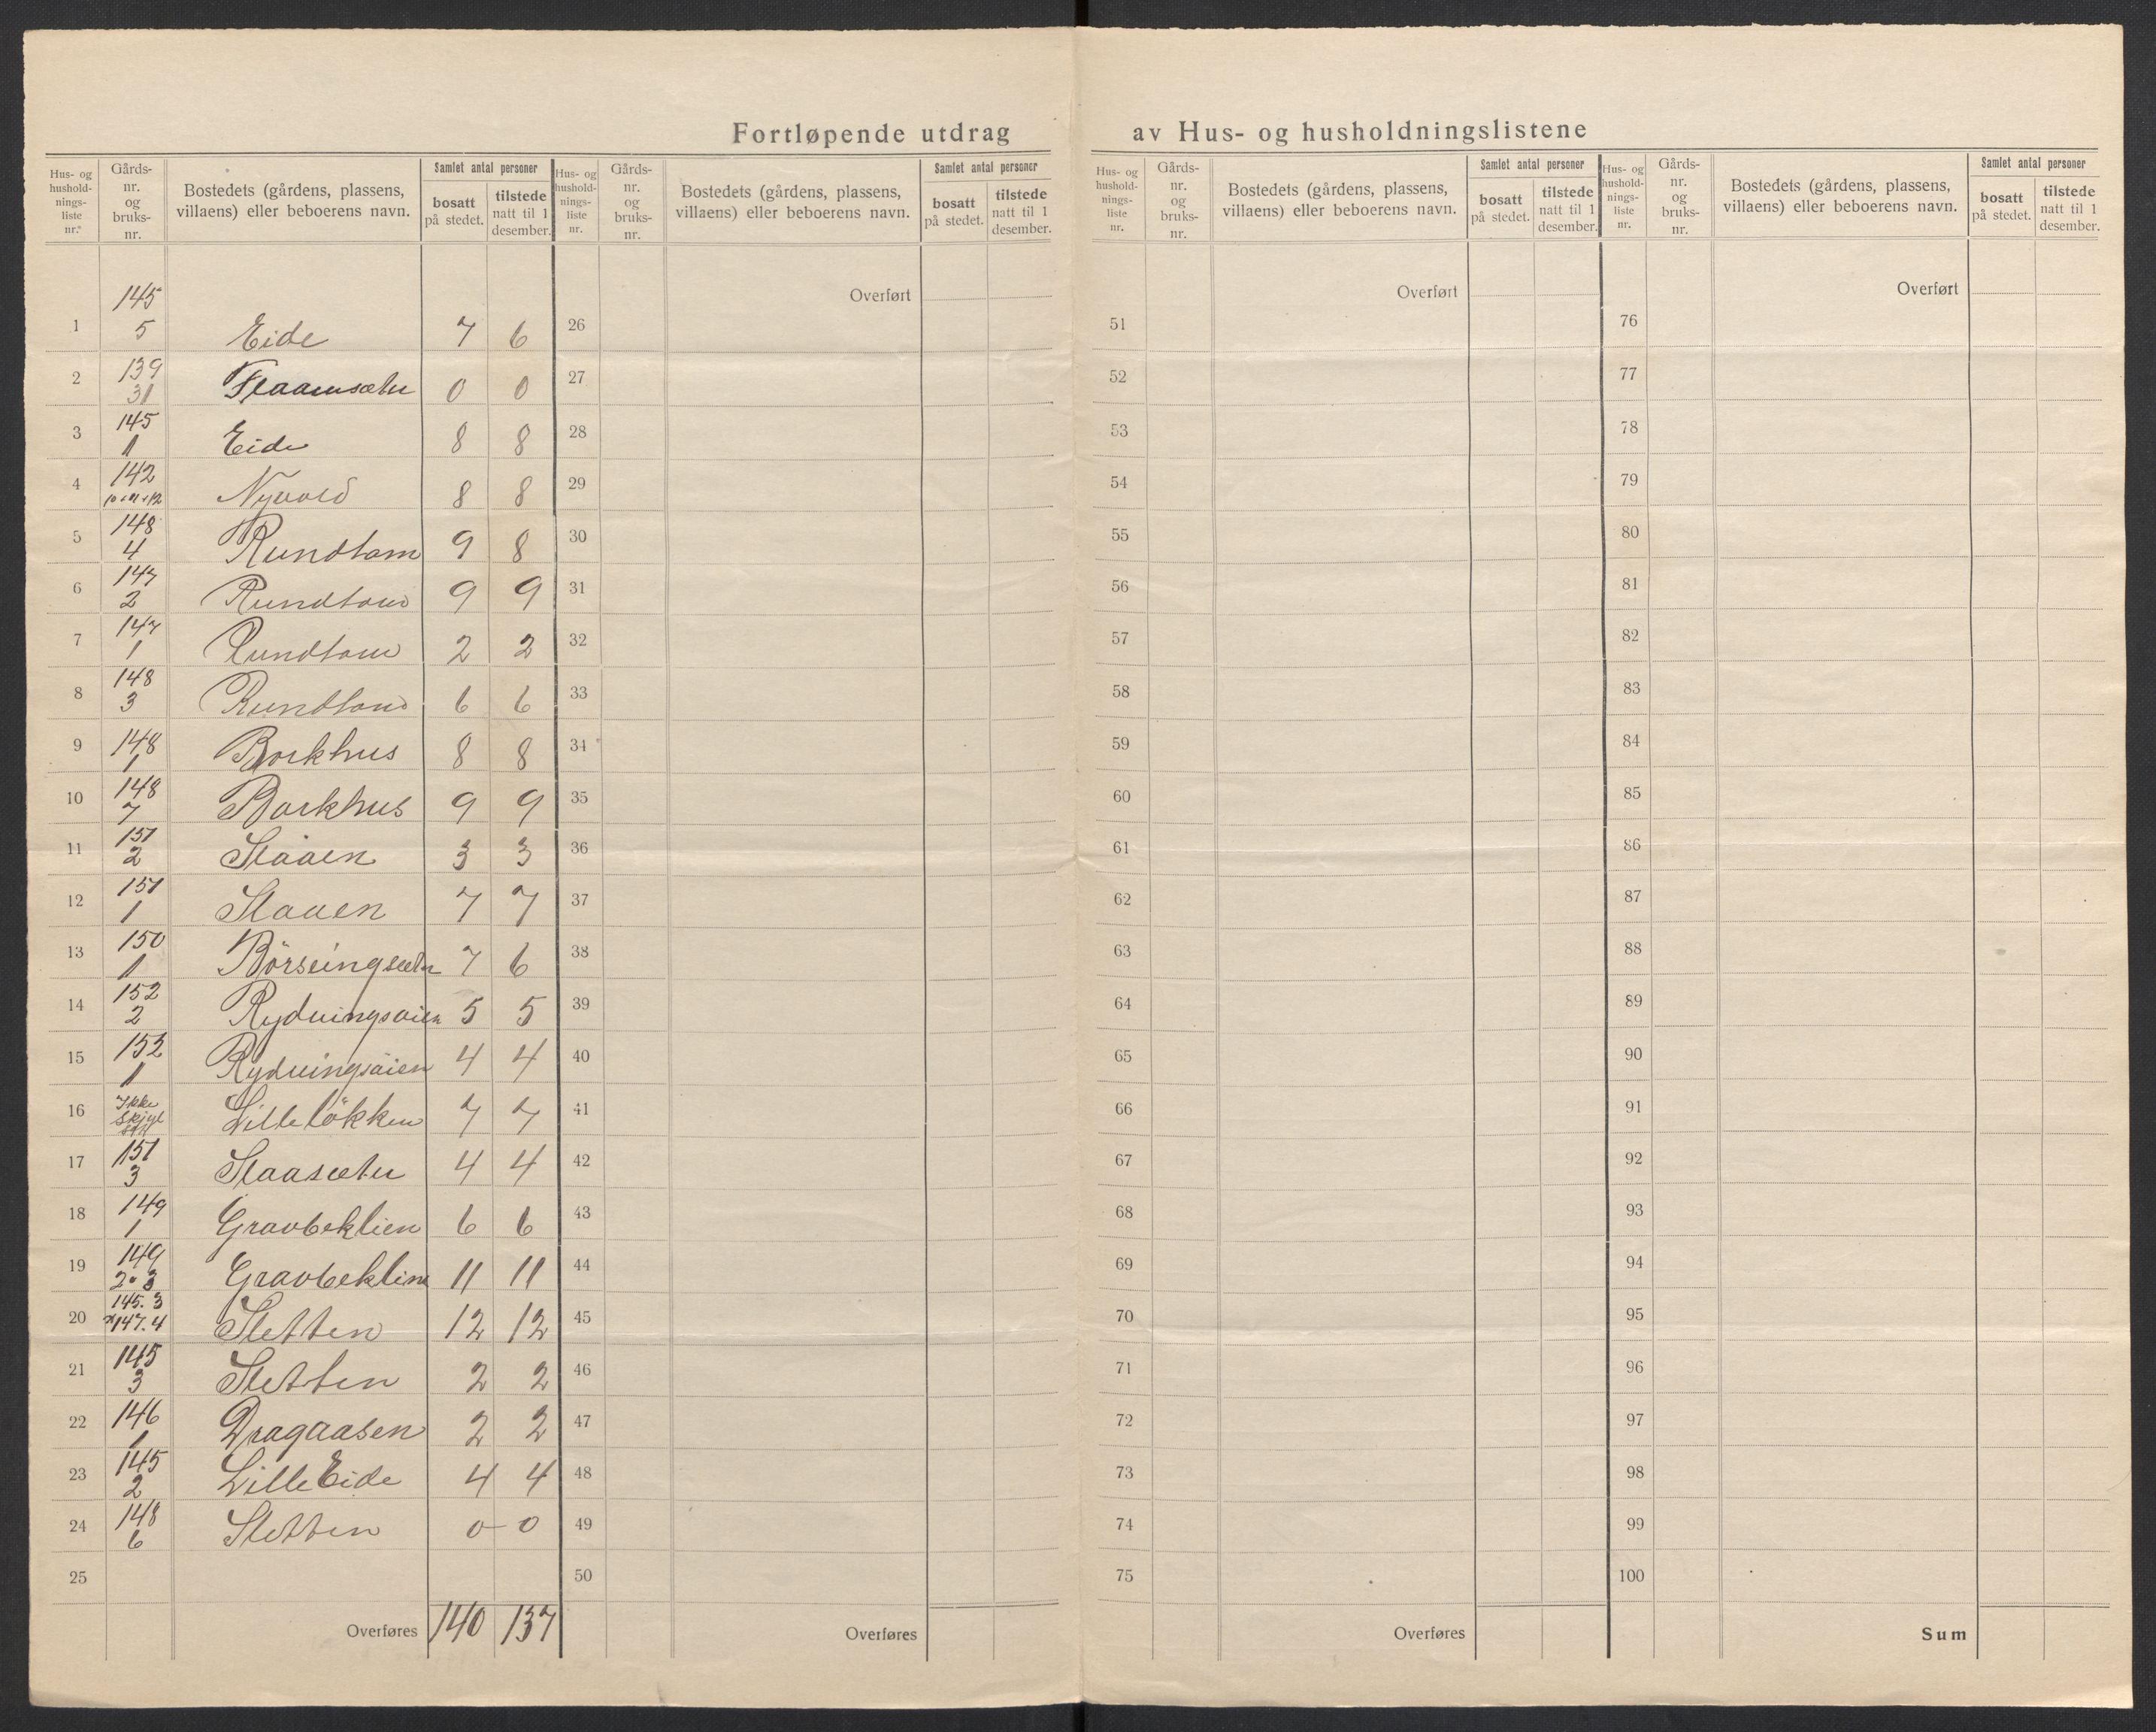 Fortløpende utdrag av Hus- og husholdningslistene
Hus- og hushold-nings-liste nr. Gårds-nr. og bruks-nr. Bostedets (gårdens, plassens, villaens) eller beboerens navn. Samlet antal personer bosatt på stedet. tilstede natt til 1 desember.
Hus- og hushold-nings-liste nr. Gårds-nr. og bruks-nr. Bostedets (gårdens, plassens, villaens) eller beboerens navn. Samlet antal personer bosatt på stedet. tilstede natt til 1 desember.
Hus- og hushold-nings-liste nr. Gårds-nr. og bruks-nr. Bostedets (gårdens, plassens, villaens) eller beboerens navn. Samlet antal personer bosatt på stedet. tilstede natt til 1 desember.
Hus- og hushold-nings-liste nr. Gårds-nr. og bruks-nr. Bostedets (gårdens, plassens, villaens) eller beboerens navn. Samlet antal personer bosatt på stedet. tilstede natt til 1 desember.
Overført Overført Overført
1 145 5 Eide 7 6 26 51 76
2 139 31 Flaamsæter 0 0 27 52 77
3 145 1 Eide 8 8 28 53 78
4 142 10+11+12 Nyvold 8 8 29 54 79
5 148 4 Rundtom 9 8 30 55 80
6 147 2 Rundtom 9 9 31 56 81
7 147 1 Rundtom 2 2 32 57 82
8 148 3 Rundtom 6 6 33 58 83
9 148 1 Borkhus 8 8 34 59 84
10 148 7 Borkhus 9 9 35 60 85
11 151 2 Slaaen 3 3 36 61 86
12 151 1 Slaaen 7 7 37 62 87
13 150 1 7 6 38 63 88
14 152 2 5 5 39 64 89
15 152 1 4 4 40 65 90
16 Ikke Lilleløkken 7 7 41 66 91
17 151 3 Slaasæter 4 4 42 67 92
18 149 1 Gravbeklien 6 6 43 68 93
19 149 2 3 Gravbeklien 11 11 44 69 94
20 145.3 147.4 Sletten 12 12 45 70 95
21 145 3 Sletten 2 2 46 71 96
22 146 1 Dragaasen 2 2 47 72 97
23 145 2 Lille Eide 4 4 48 73 98
24 148 6 Sletten 0 - 0 49 74 99
25 50 75 100
Overføres 140 137 Overføres Overføres Sum